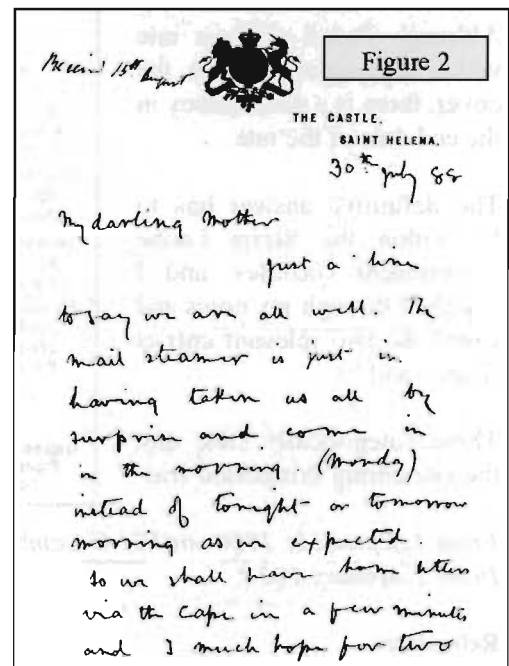 Figure 2
Recd 15th August
THE CASTLE,
SAINT HELENA.
30th July 88
My darling Mother
Just a line
to say we are all well. The
mail steamer is just in.
having taken us all by
surprise and come in
in the morning (Monday)
instead of tonight or tomorrow
morning as we expected.
So we shall have home letters
via the Cape in a few minutes
and I much hope for two